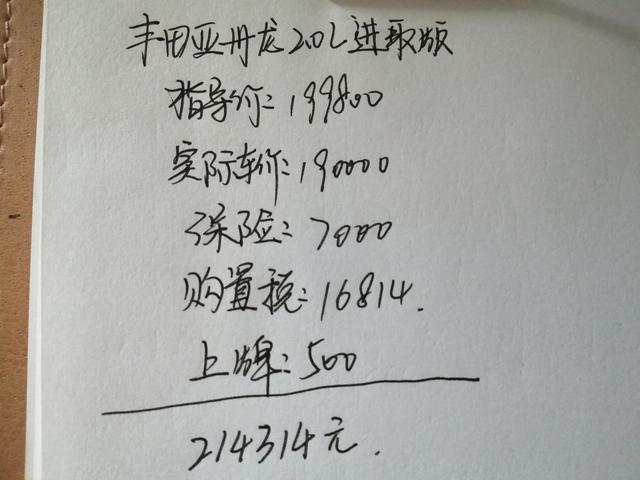 丰田亚丹龙2.0L进取版
指导价:199800
实际车价:190000
保险:7000
购置税:16814.
上牌:500
214314元.